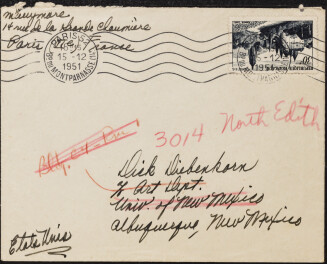 14 rue de la Grande Chaumière
Paris France
PARIS
15-12
1951
MONTPARNASSE
15-12
1951
3014 North Edith
Dick Diebenkorn
℅ Art Dept.
Univ. of New Mexico
Albuquerque, New Mexico
Etats Unis